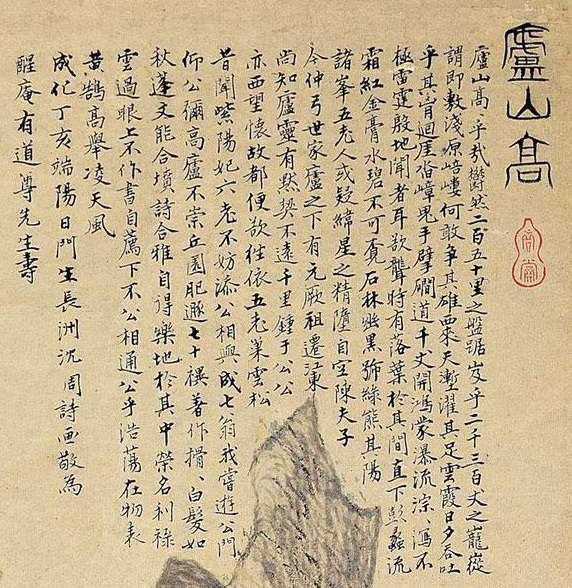 廬山高
廬山高高乎哉鬱然二百五十里之盤踞岌乎二千三百丈之巃嵸
謂即敷淺原培嶁何敢爭其雄西來天塹濯其足雲霞日夕吞吐
乎其胷迴崖沓嶂鬼手擘磵道千丈開鴻蒙瀑流淙淙瀉不
極雷霆殷地聞者耳欲聾時有落葉於其間直下彭蠡流
霜紅金膏水碧不可覔石林幽黑號綠熊其陽
諸峯五老人或疑緯星之精墮自空陳夫子
今仲弓世家廬之下有元厥祖遷江東
尚知廬靈有默契不遠千里鍾于公公
亦西望懷故都便欲往依五老巢雲松
昔聞紫陽妃六老不妨添公相與成七翁我嘗遊公門
仰公彌高廬不崇丘園肥遯七十祺著作揖揖白髮如
秋蓬文能合墳詩合雅自得樂地於其中榮名利祿
雲過眼上不作書自薦下不公相通公乎浩蕩在物表
黃鵠高舉凌天風
成化丁亥端陽日門生長洲沈周詩畫敬為
醒庵有道尊先生壽